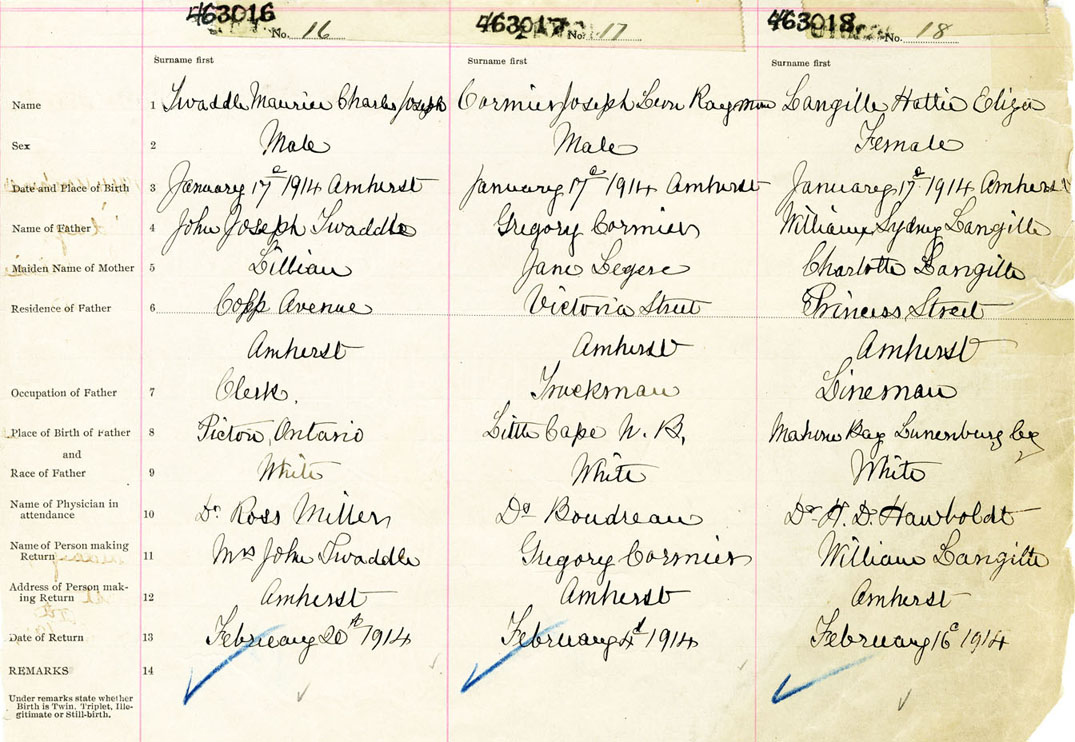 463016 463017 463018
No. 16 No. 17 No. 18
Surname first Surname first Surname first
Name 1 Twaddle Maurice Charles Joseph Cormier Joseph Leon Raymon Langille Hattie Eliza
Sex 2 Male Male Female
Date and Place of Birth 3 January 17th 1914 Amherst January 17th 1914 Amherst January 17th 1914 Amherst
Name of Father 4 John Joseph Twaddle Gregory Cormier William Sydney Langille
Maiden Name of Mother 5 Lillian Jane Legere Charlotte Langille
Residence of Father 6 Copp Avenue Victoria Street Princess Street
Amherst Amherst Amherst
Occupation of Father 7 Clerk. Truckman Lineman
Place of Birth of Father 8 Picton, Ontario Little Cape N. B. Mahone Bay Lunenburg Co
and
Race of Father 9 White White White
Name of Physician in
attendance 10 Dr Ross Miller Dr Boudreau Dr H. D. Hawboldt
Name of Person making
Return 11 Mrs John Twaddle Gregory Cormier William Langille
Address of Person mak-
ing Return 12 Amherst Amherst Amherst
Date of Return 13 February 20th 1914 February 4th 1914 February 16th 1914
REMARKS 14
Under remarks state whether
Birth is Twin, Triplet, Ille-
gitimate or Still-birth.